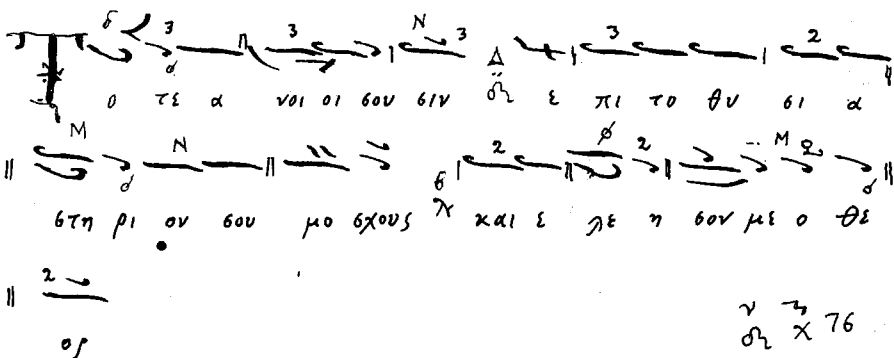 Το τε α νοι οι σου σιν ε πι το θυ σι α
στη ρι ον σου μο σχους και ε λε η σον με ο θε
ος
76